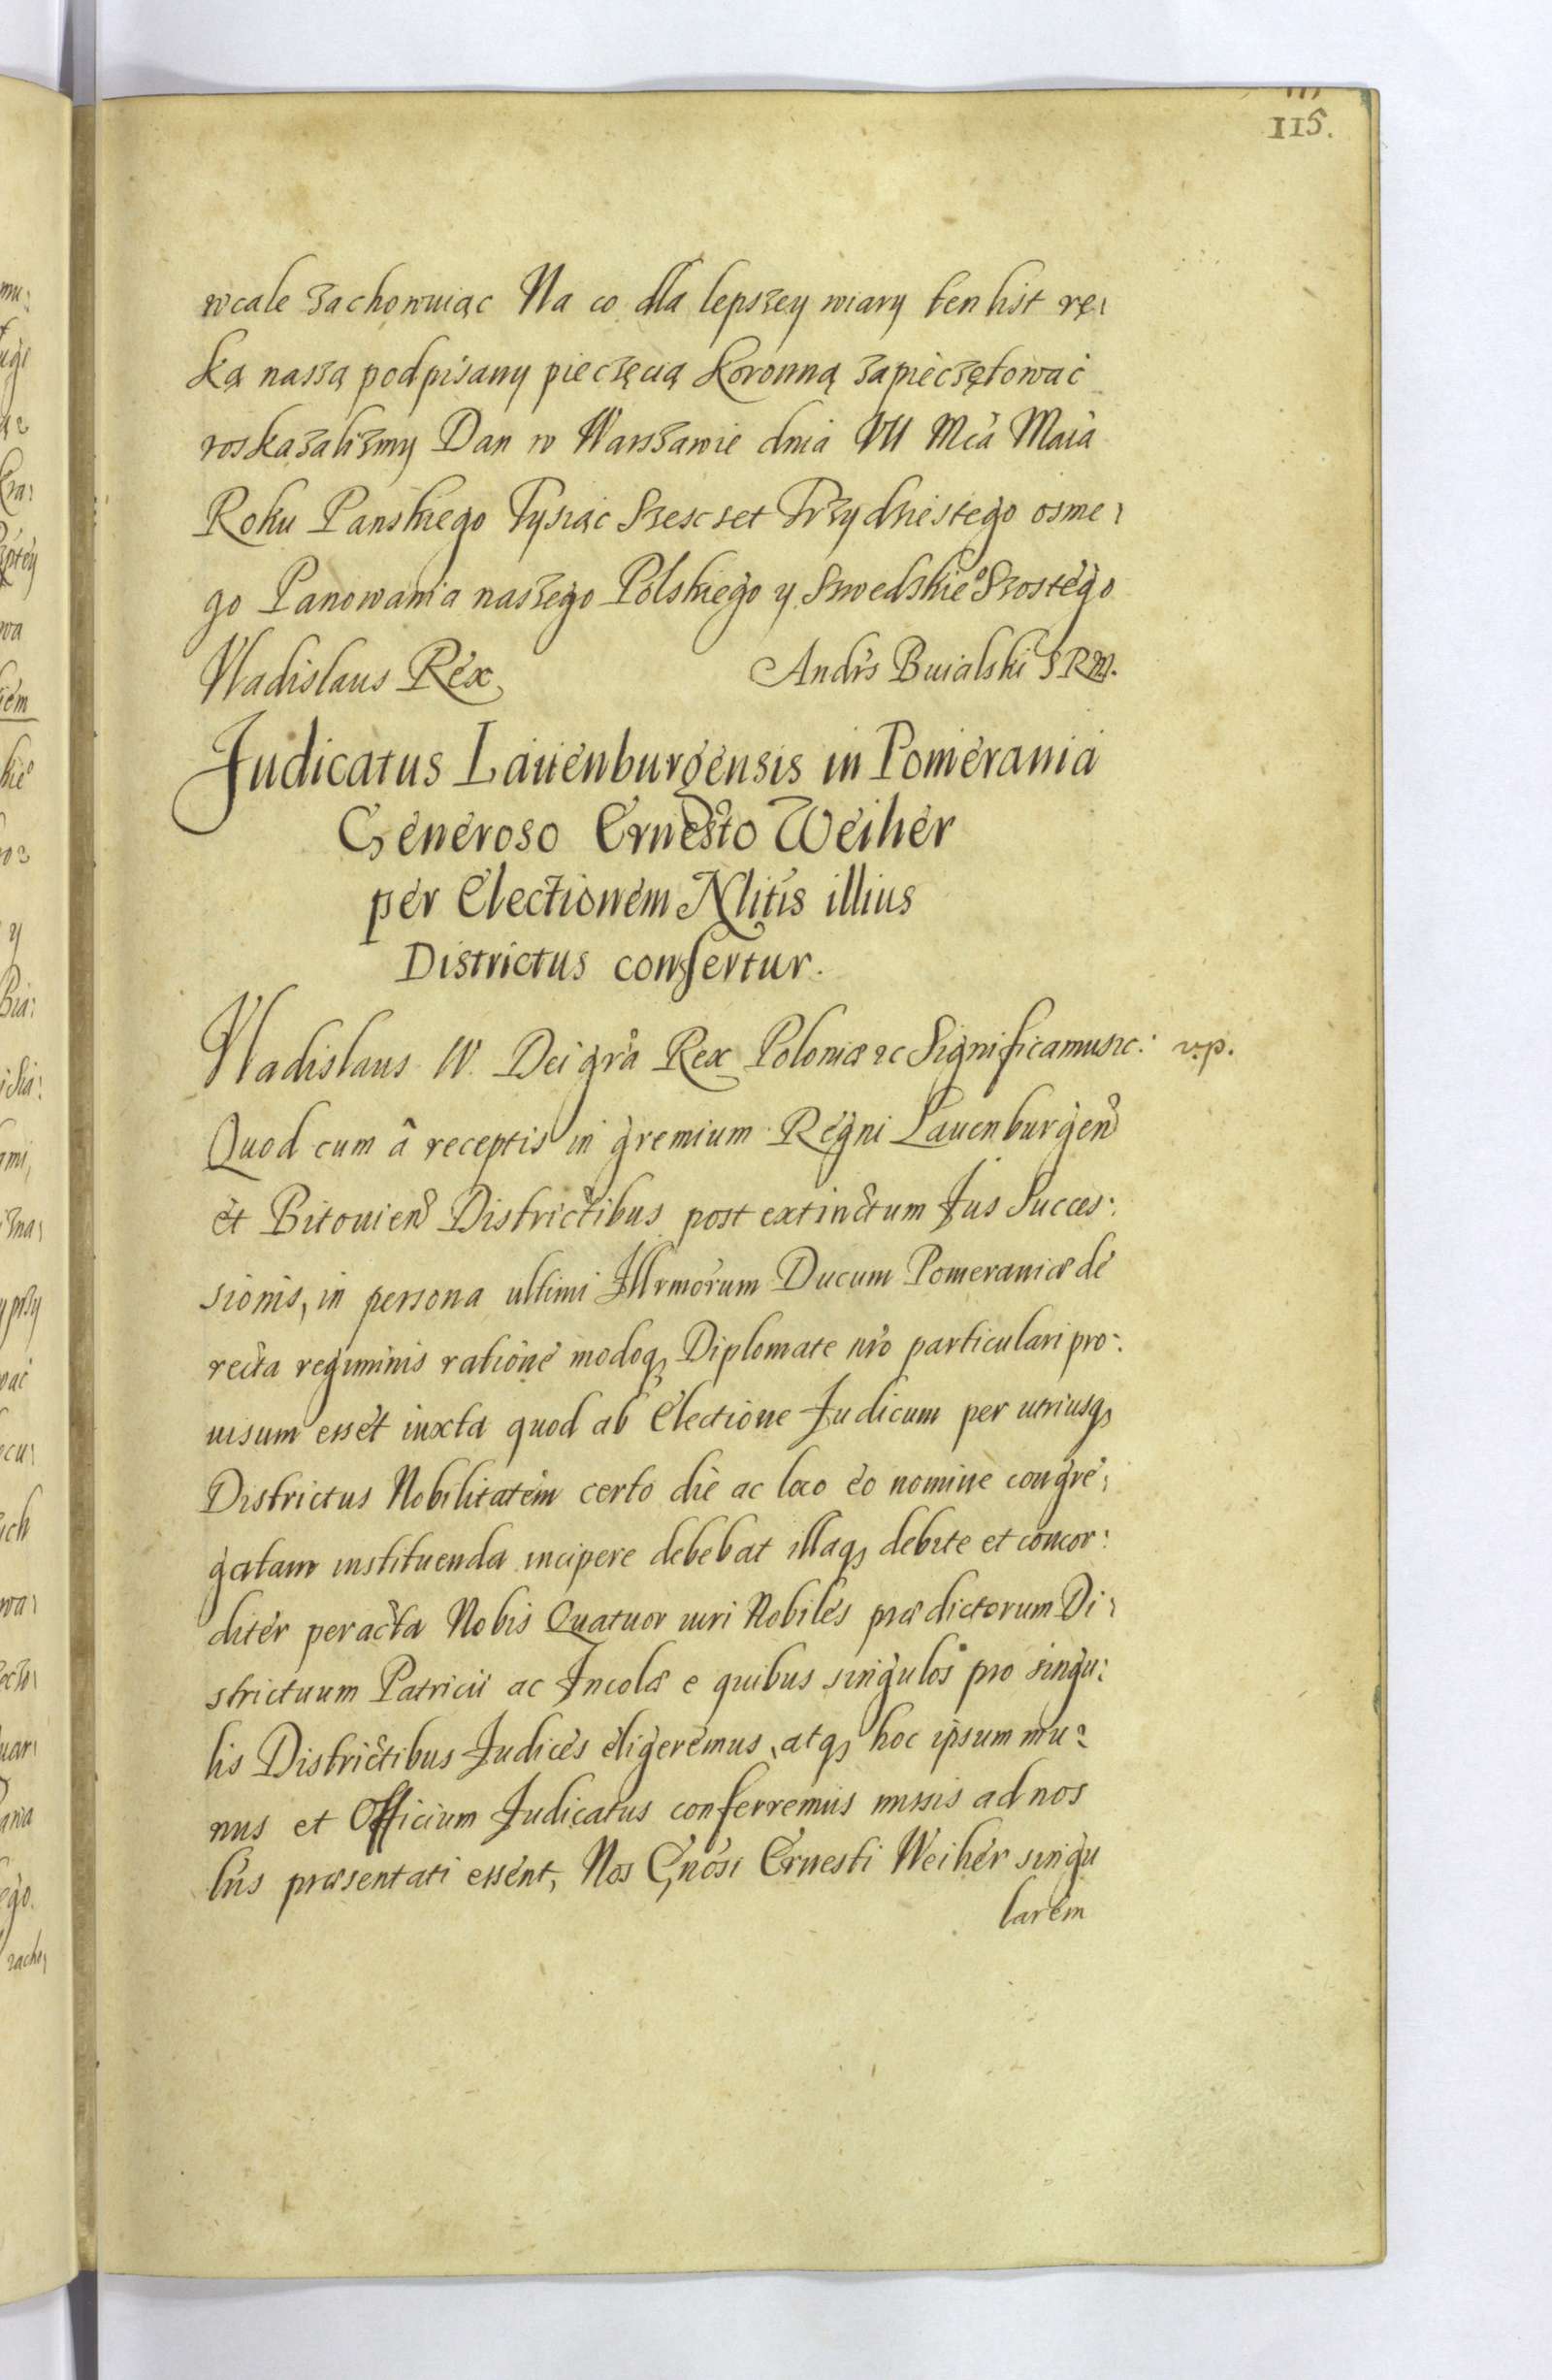 115.
wcale zachowuiąc Na co dla lepszey wiary ten list rę:
ką naszą podpisany pieczęcią koronną zapieczętować
roskazalizmy Dan w Warszawie dnia VII Mcà Maia
Roku Panskiego Tysiąc Szescset Trzydziestego osme:
go Panowania naszego Polskiego y Szwedskieᵒ Szostego
Vladislaus Rex
Andrs Buialski SRM.
Judicatus Lauenburgensis in Pomerania
Generoso Ernesto Weiher
per Electionem Nlitis illius
Districtus confertur.
Vladislaus IV. Dei gra Rex Poloniæ ꝛc Significamus ꝛc: v.p.
Quod cum â receptis in gremium Regni Lauenburgen
et Bitouien Districtibus post extinctum Jus Succes:
sionis, in persona ultimi Illrmorum Ducum Pomeraniæ de
recta regiminis ratione modoq, Diplomate nro particulari pro:
uisum esset iuxta quod ab Electione Judicum per utriusq,
Districtus Nobilitatem certo die ac loco eo nomine congre:
gatam instituenda incipere debebat illaq, debite et concor:
diter peracta Nobis Quatuor uiri Nobiles prædictorum Di:
strictuum Patricii ac Incolæ e quibus singulos pro singu:
lis Districtibus Judices eligeremus, atq, hoc ipsum mu:
nus et Officium Judicatus conferremus missis ad nos
lris præsentati essent, Nos Gnosi Ernesti Weiher singu
larem